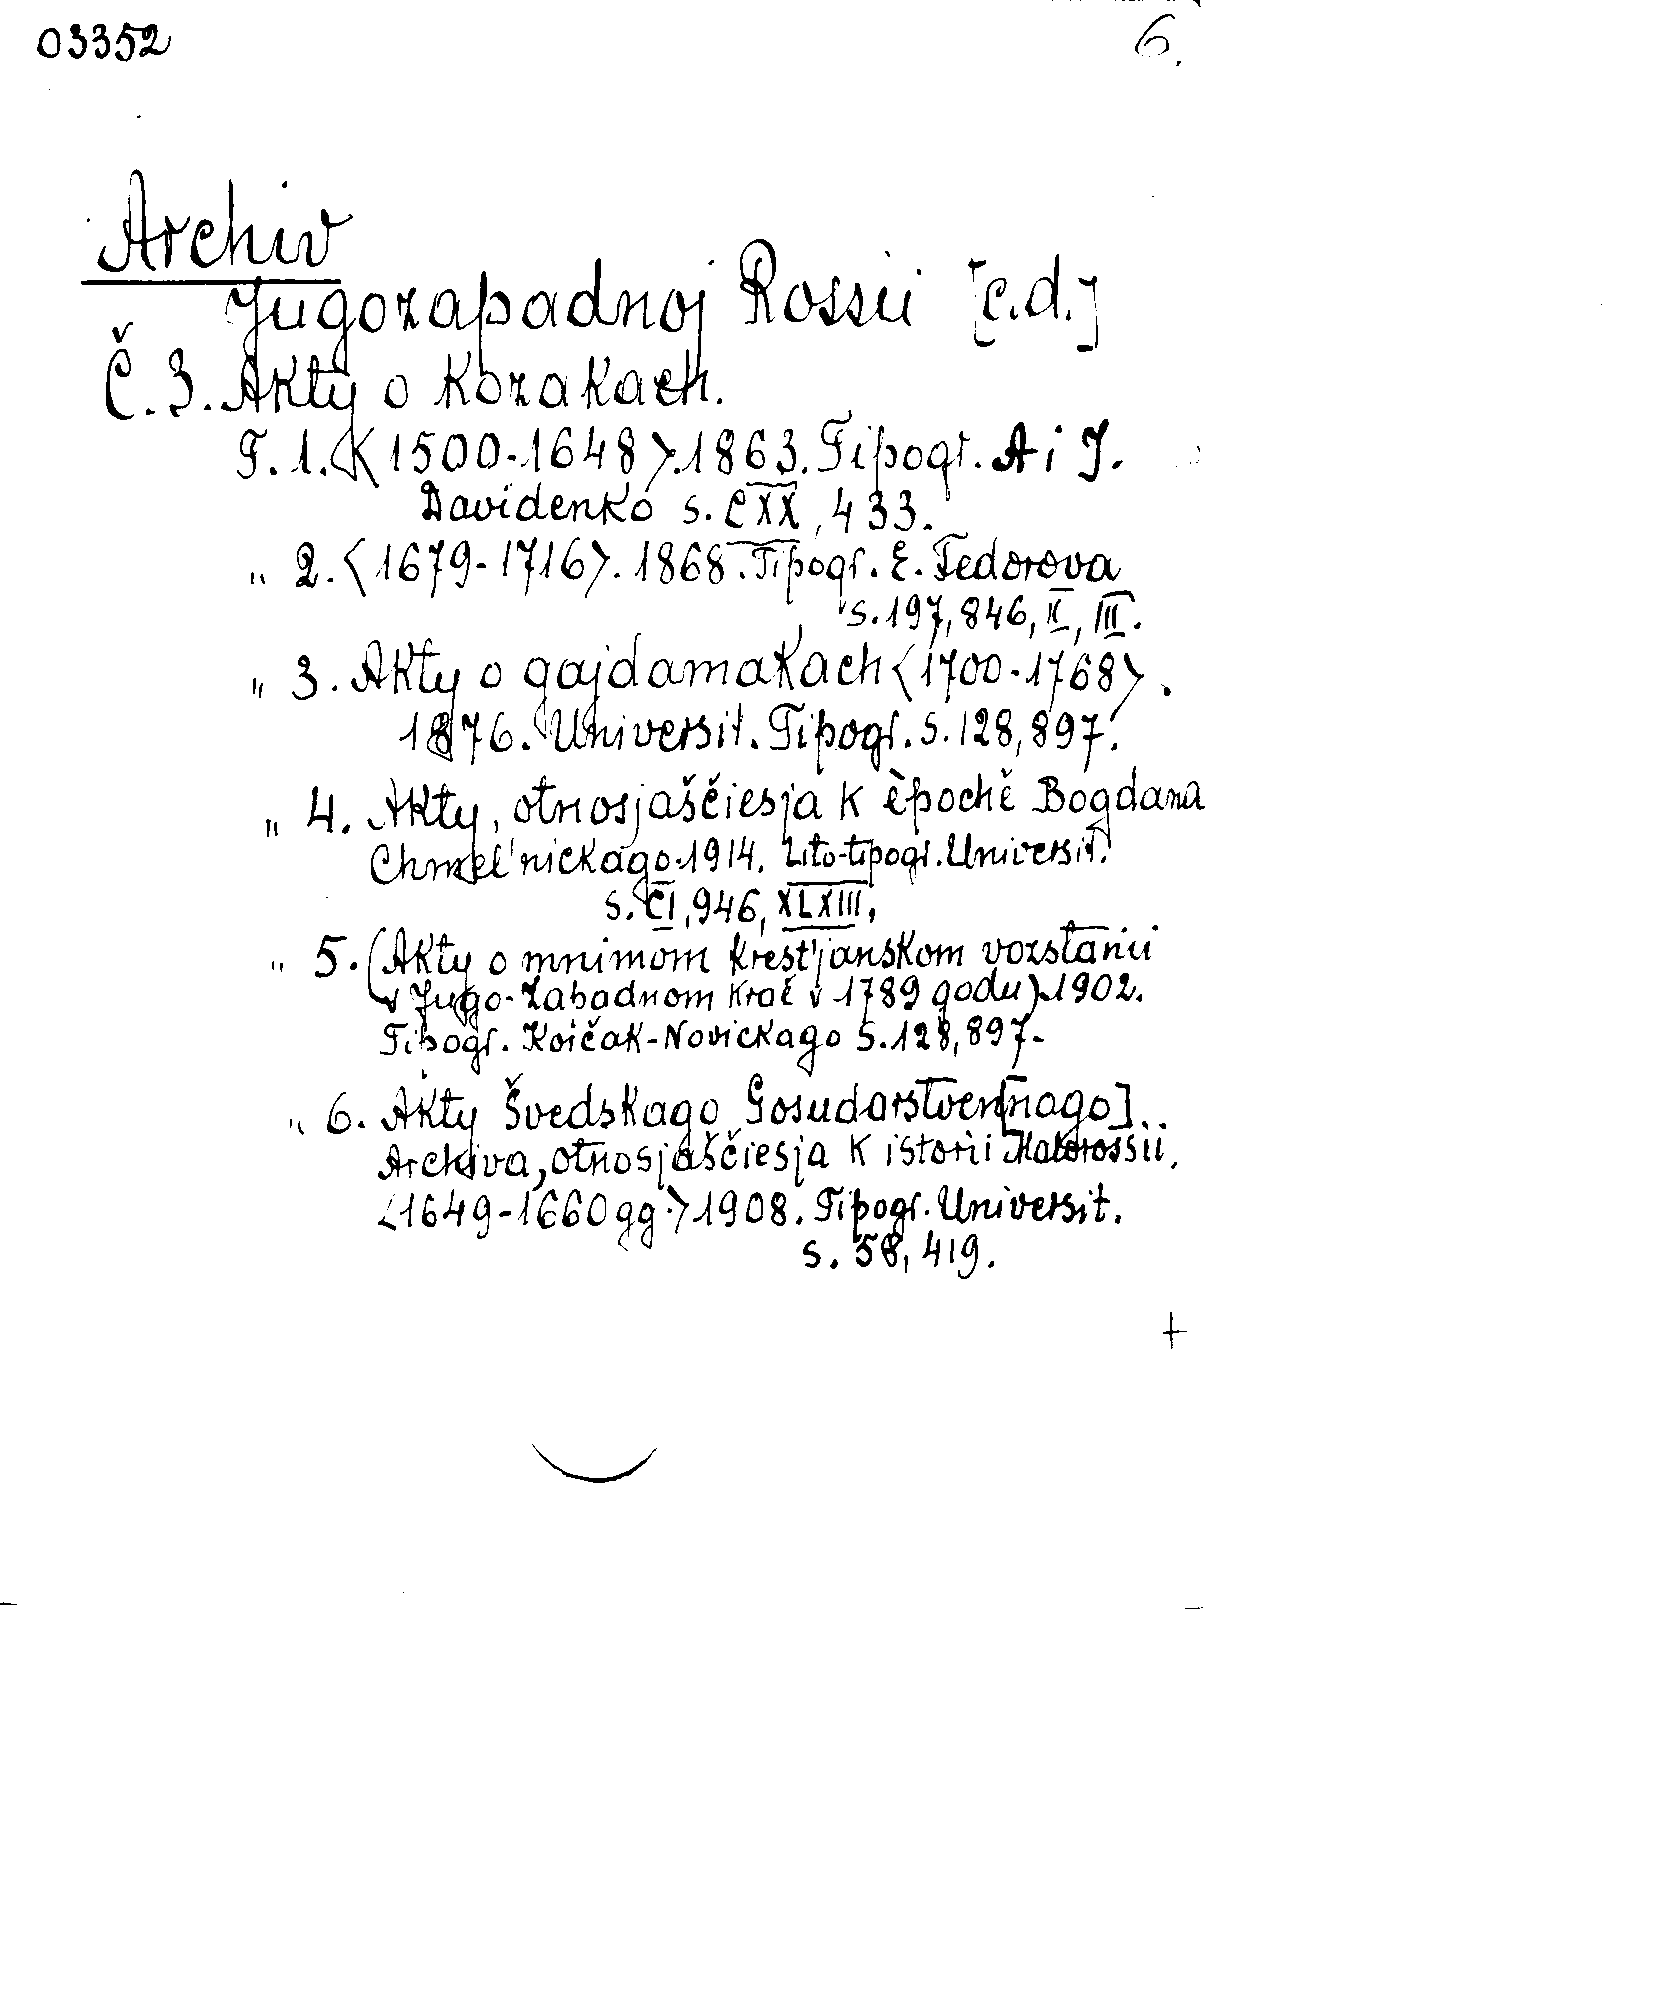 03352
6.
Archiv
Jugozapadnoj Rossii [c.d.]
Č. 3. Akty o kozakach.
T. 1. <1500-1648>. 1863. Tipogr. A i J.
Davidenko s. CXX, 433.
„ 2. <1679-1716>. 1868. Tipogr. E. Fedorova
s. 197, 846, II, III.
„ 3. Akty o gajdamakach <1700-1768>.
1876. Universit. Tipogr. s. 128, 897.
„ 4. Akty, otnosjaščiesja k èpochě Bogdana
Chmel'nickago. 1914. Lito-tipogr. Universit.
s. CI, 946, XLXIII,
„ 5. (Akty o mnimom krest'janskom vozstanii
v Jugo-Zapadnom kraě v 1789 godu). 1902.
Tipogr. Korčak-Novickago s. 128, 897.
„ 6. Akty Švedskago Gosudarstven[nago]
Archiva, otnosjaščiesja k istorii Malorossii.
<1649-1660 gg.> 1908. Tipogr. Universit.
s. 58, 419.
+